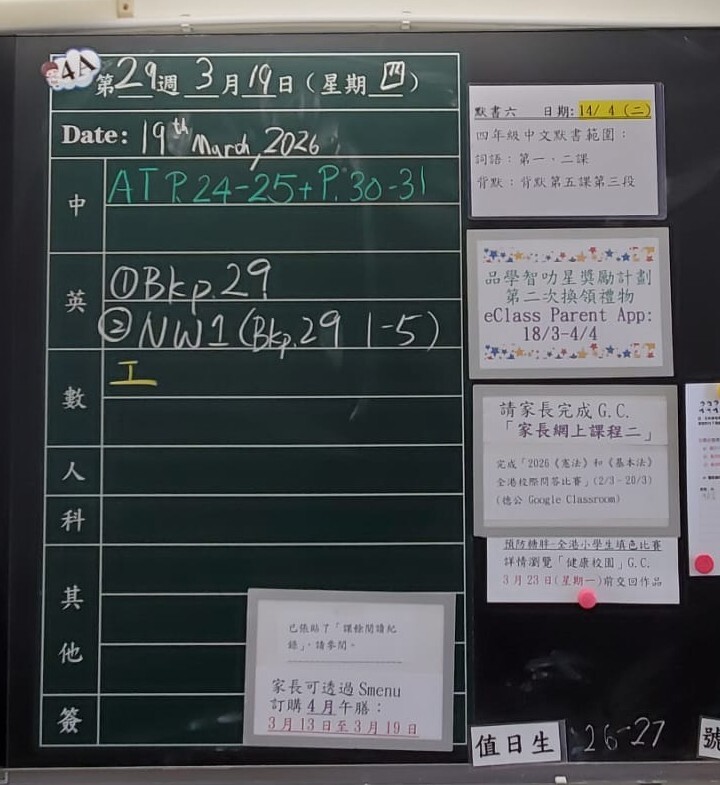 4A
第29週 3月19日（星期四）
Date: 19th March, 2026
中
AT P.24-25+P.30-31
英
①Bkp.29
②NW1(Bkp.29 1-5)
數
工
人
科
其
他
簽
已張貼了「課餘閱讀紀
錄」，請參閱。
家長可透過 Smenu
訂購4月午膳：
3月13日至3月19日
默書六 日期：14/4（二）
四年級中文默書範圍：
詞語：第一、二課
背默：背默第五課第三段
品學智叻星獎勵計劃
第二次換領禮物
eClass Parent App:
18/3-4/4
請家長完成G.C.
「家長網上課程二」
完成「2026《憲法》和《基本法》
全港校際問答比賽」(2/3–20/3)
(德公 Google Classroom)
預防糖胖-全港小學生填色比賽
詳情瀏覽「健康校園」G.C.
3月23日(星期一)前交回作品
值日生 26-27 號